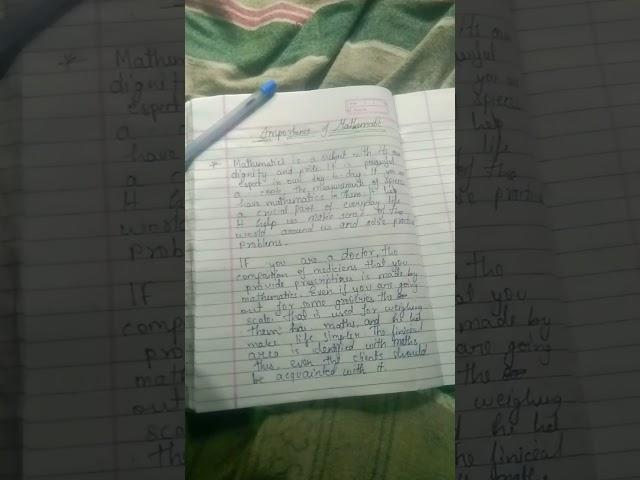 Importance of Mathematic
* Mathematics is a subject with its own
dignity and pride. It is a powerful
espect in our day-to-day. If you are
a cook, the measurements of spices
have mathematics in them. It help
a crucial part of everyday life
It help us make sense of the
world around us and solve practice
problems.
If you are a doctor, the
composition of mediciens that you
provide prescriptions is made by
mathematics. Even if you are going
out for some groceries the
scale that is used for weighing
them has maths, and he hel
makes life simpler. The finiceal
area is identified with maths,
this even the clients should
be acquainted with it.